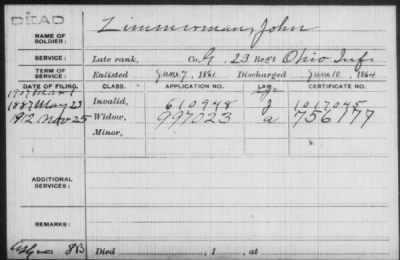 DEAD
NAME OF SOLDIER: Zimmerman, John
SERVICE: Late rank, Co. G, 23 Reg't Ohio Inf.
TERM OF SERVICE: Enlisted June 7, 1861 Discharged June 10, 1864
DATE OF FILING. CLASS. APPLICATION NO. LAW. CERTIFICATE NO.
1907 Mar
1887 May 23 Invalid, 610948 J 1017045
1912 Nov 25 Widow, 997023 a 756177
Minor,
ADDITIONAL SERVICES:
REMARKS:
Died , 1 , at